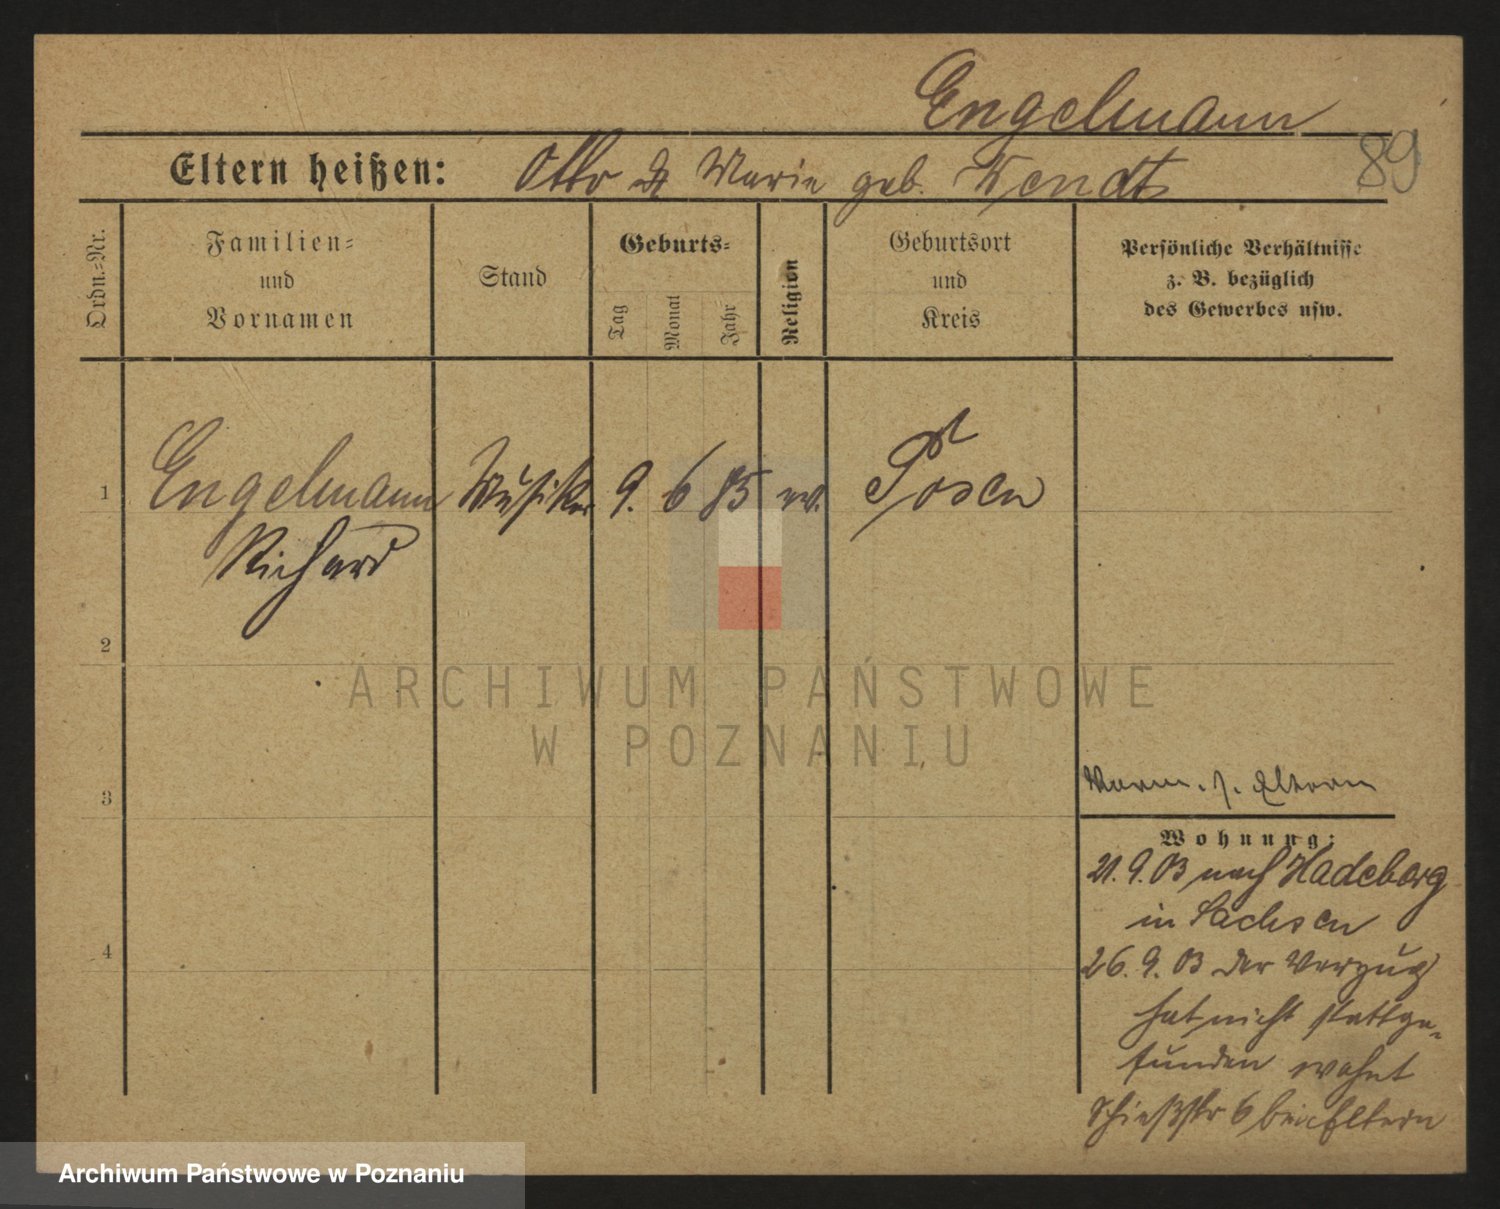 Engelmann
89
Eltern heißen: Otto & Marie geb. Wendt
Ordn.-Nr.
Familien-
und
Vornamen
Stand
Geburts-
Tag
Monat
Jahr
Religion
Geburtsort
und
Kreis
Persönliche Verhältnisse
z. B. bezüglich
des Gewerbes usw.
1 Engelmann Musiker 9. 6 85 ev. Posen
Richard
2
3
4
ARCHIWUM PAŃSTWOWE
W POZNANIU
Verm. s. Eltern
Wohnung:
21.9.03 nach Hadeborg
in Sachsen
26.9.03 der Verzug
hat nicht stattge-
funden wohnt
Schießstr 6 bei Eltern
Archiwum Państwowe w Poznaniu